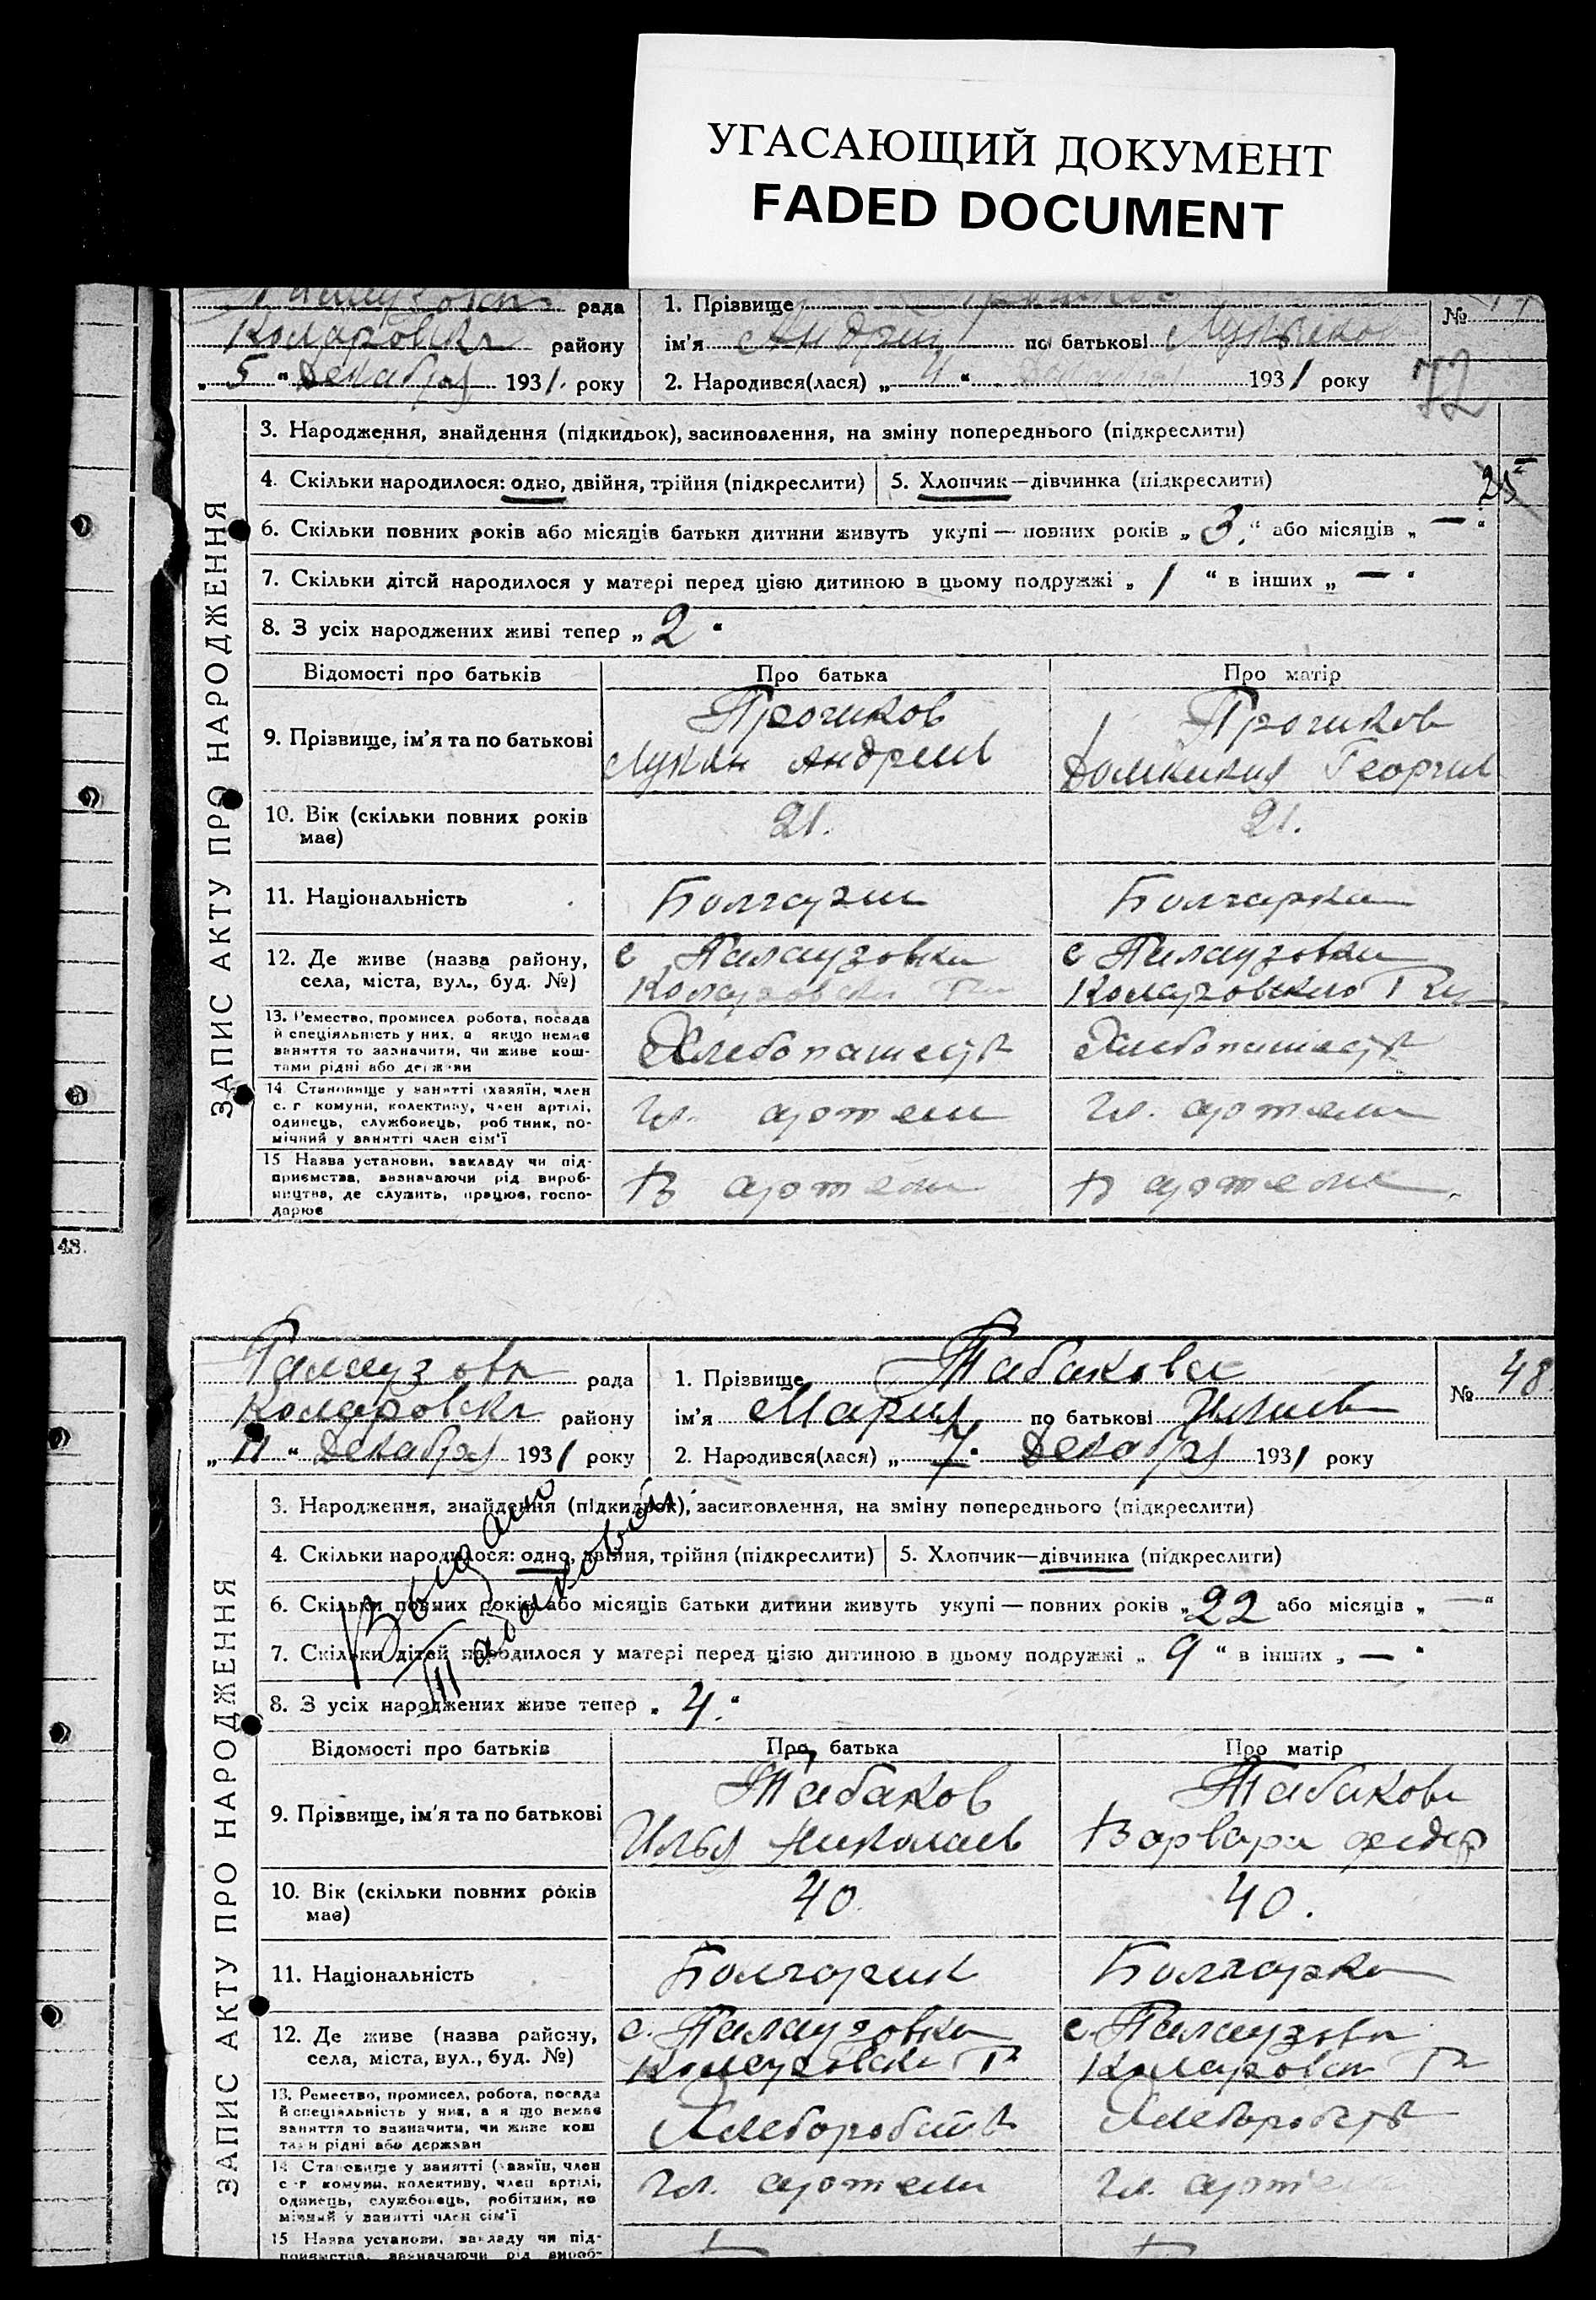 УГАСАЮЩИЙ ДОКУМЕНТ
FADED DOCUMENT
рада
Коларовск району
„ 5 “ Декабря 1931. року
1. Прізвище
ім'я Андрей по батькові Лукъянов
2. Народився(лася) „ 4 “ декабря 1931 року
№
72
ЗАПИС АКТУ ПРО НАРОДЖЕННЯ
3. Народження, знайдення (підкидьок), засиновлення, на зміну попереднього (підкреслити)
4. Скільки народилося: одно, двійня, трійня (підкреслити)
5. Хлопчик—дівчинка (підкреслити)
25
6. Скільки повних років або місяців батьки дитини живуть укупі — повних років „ 3. “ або місяців „ — “
7. Скільки дітей народилося у матері перед цією дитиною в цьому подружжі „ 1 “ в інших „ — “
8. З усіх народжених живі тепер „ 2 “
Відомості про батьків Про батька Про матір
9. Прізвище, ім'я та по батькові
Трочиков
Лукян Андреев
Трочиков
Домникия Георгиев
10. Вік (скільки повних років має) 21. 21.
11. Національність Болгарин Болгарка
12. Де живе (назва району, села, міста, вул., буд. №)
с Палаузовка
Коларовски Рн
с Палаузовки
Коларовского Рн
13. Ремество, промисел, робота, посада
й спеціяльність у них, а якщо немає
заняття то зазначити, чи живе кош-
тами рідні або держави
Хлебопашеств Хлебопашеств
14. Становище у занятті (хазяїн, член
с.-г. комуни, колективу, член артілі,
одинець, службовець, робітник, по-
мічний у занятті член сім'ї
Чл. артели Чл. артели
15. Назва установи, закладу чи під-
приємства, зазначаючи рід вироб-
ництва, де служить, працює, госпо-
дарює
В артели В артели
48.
Палаузовк рада
Коларовск району
„ 11 “ Декабря 1931 року
1. Прізвище Табакова
ім'я Мария по батькові Ильиев
2. Народився(лася) „ 7. “ Декабря 1931 року
№ 48
ЗАПИС АКТУ ПРО НАРОДЖЕННЯ
3. Народження, знайдення (підкидьок), засиновлення, на зміну попереднього (підкреслити)
4. Скільки народилося: одно, двійня, трійня (підкреслити)
5. Хлопчик—дівчинка (підкреслити)
6. Скільки повних років або місяців батьки дитини живуть укупі — повних років „ 22 або місяців „ — “
7. Скільки дітей народилося у матері перед цією дитиною в цьому подружжі „ 9 “ в інших „ — “
8. З усіх народжених живе тепер „ 4. “
Выдано
Табаковой
Відомості про батьків Про батька Про матір
9. Прізвище, ім'я та по батькові
Табаков
Илья Николаев
Табакова
Варвара Федор
10. Вік (скільки повних років має) 40. 40.
11. Національність Болгарин Болгарка
12. Де живе (назва району, села, міста, вул., буд. №)
с. Палаузовка
Коларовски Рн
с. Палаузовк
Коларовск Рн
13. Ремество, промисел, робота, посада
й спеціяльність у них, а якщо немає
заняття то зазначити, чи живе кош-
тами рідні або держави
Хлеборобств Хлеборобств
14. Становище у занятті (хазяїн, член
с.-г. комуни, колективу, член артілі,
одинець, службовець, робітник, по-
мічний у занятті член сім'ї
Чл. артели Чл. артели
15. Назва установи, закладу чи під-
приємства, зазначаючи рід вироб-